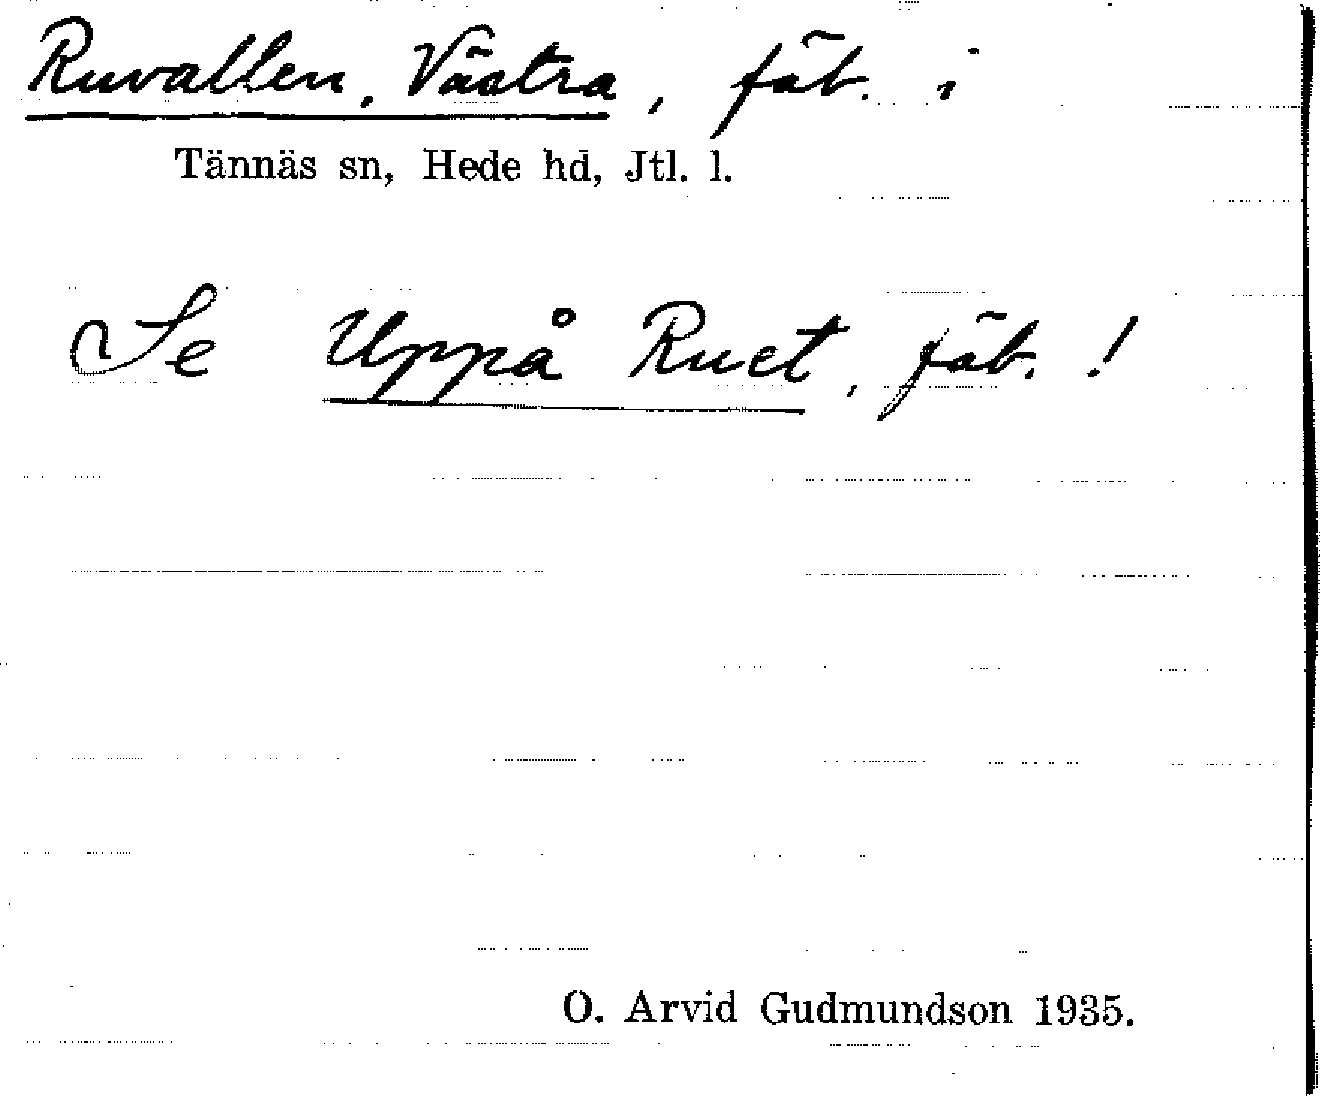 Ruvallen, Västra, fäb. i
Tännäs sn, Hede hd, Jtl. l.
Se Uppå Ruet, fäb. !
O. Arvid Gudmundson 1935.